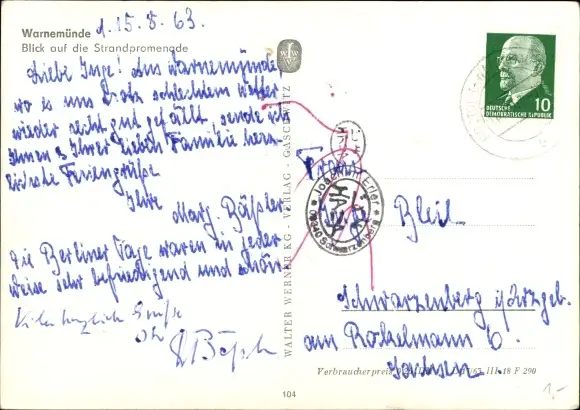 Warnemünde
Blick auf die Strandpromenade
d. 15.8.63.
Liebe Inge! Aus Warnemünde,
wo es uns trotz schlechtem Wetter
wieder recht gut gefällt, sende ich
Ihnen u. Ihrer lieben Familie herz-
lichste Feriengrüße
Ihre
Marg. Bäßler
Die Berliner Tage waren in jeder
weise sehr befriedigend und schön
Viele herzliche Grüße
WALTER WERNER KG · VERLAG · GASCHWITZ
10
DEUTSCHE
DEMOKRATISCHE REPUBLIK
Frau
Inge Bleil
Schwarzenberg i/Erzgeb.
am Rockelmann 6.
Sachsen
Verbraucherpreis
III 18 F 290
104